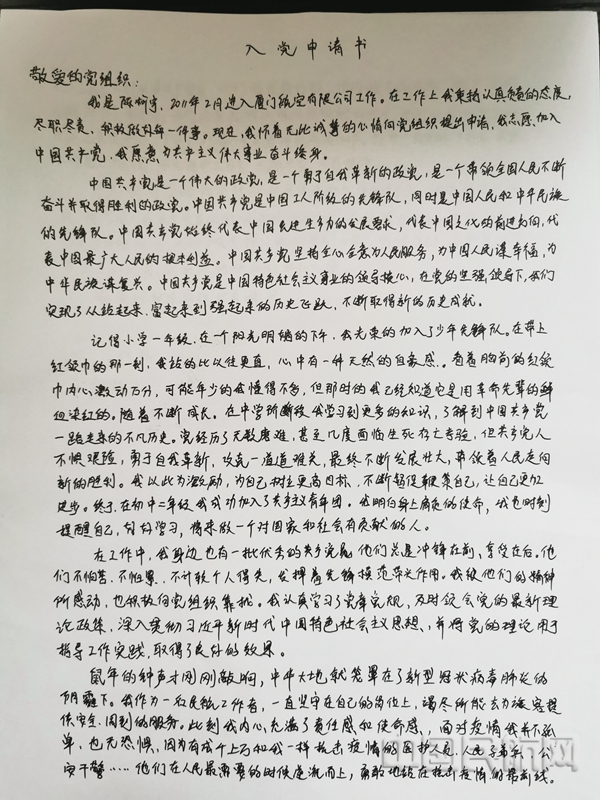 入党申请书
敬爱的党组织：
我是陈 ，2011年2月进入厦门航空有限公司工作。在工作上我秉持认真负责的态度，
尽职尽责，积极做好每一件事。现在，我怀着无比诚挚的心情向党组织提出申请，我志愿加入
中国共产党，我愿意为共产主义伟大事业奋斗终身。
中国共产党是一个伟大的政党，是一个勇于自我革新的政党，是一个带领全国人民不断
奋斗并取得胜利的政党。中国共产党是中国工人阶级的先锋队，同时是中国人民和中华民族
的先锋队。中国共产党始终代表中国先进生产力的发展要求，代表中国文化的前进方向，代
表中国最广大人民的根本利益。中国共产党坚持全心全意为人民服务，为中国人民谋幸福，为
中华民族谋复兴。中国共产党是中国特色社会主义事业的领导核心，在党的坚强领导下，我们
实现了从站起来、富起来到强起来的历史飞跃，不断取得新的历史成就。
记得小学一年级，在一个阳光明媚的下午，我光荣的加入了少年先锋队。在带上
红领巾的那一刻，我站的比以往更直，心中有一种天然的自豪感。看着胸前的红领
巾内心激动万分，可能年少的我懂得不多，但那时的我已经知道它是用革命先辈的鲜
血染红的。随着不断成长，在中学阶段我学习到更多的知识，了解到中国共产党
一路走来的不凡历史。党经历了无数磨难，甚至几度面临生死存亡考验，但共产党人
不惧艰险，勇于自我革新，攻克一道道难关，最终不断发展壮大，带领着人民走向
新的胜利。我以此为激励，为自己树立更高目标，不断督促鞭策自己，让自己更加
进步。终于，在初中二年级我成功加入了共产主义青年团。我明白身上肩负的使命，我也时刻
提醒自己，好好学习，将来做一个对国家和社会有贡献的人。
在工作中，我身边也有一批优秀的共产党员，他们总是冲锋在前、享受在后。他
们不怕苦、不怕累，不计较个人得失，发挥着先锋模范带头作用。我被他们的精神
所感动，也积极向党组织靠拢。我认真学习了党章党规，及时领会党的最新理
论政策，深入贯彻习近平新时代中国特色社会主义思想，并将党的理论用于
指导工作实践，取得了良好的效果。
鼠年的钟声才刚刚敲响，中华大地就笼罩在了新型冠状病毒肺炎的
阴霾下。我作为一名民航工作者，一直坚守在自己的岗位上，竭尽所能去为旅客提
供安全、周到的服务。此刻我内心充满了责任感和使命感，面对疫情我并不孤
单，也无恐惧，因为有成千上万和我一样抗击疫情的医护人员、人民子弟兵、公
安干警……他们在人民最需要的时候逆流而上，勇敢地站在抗击疫情的最前线。
中国民航网